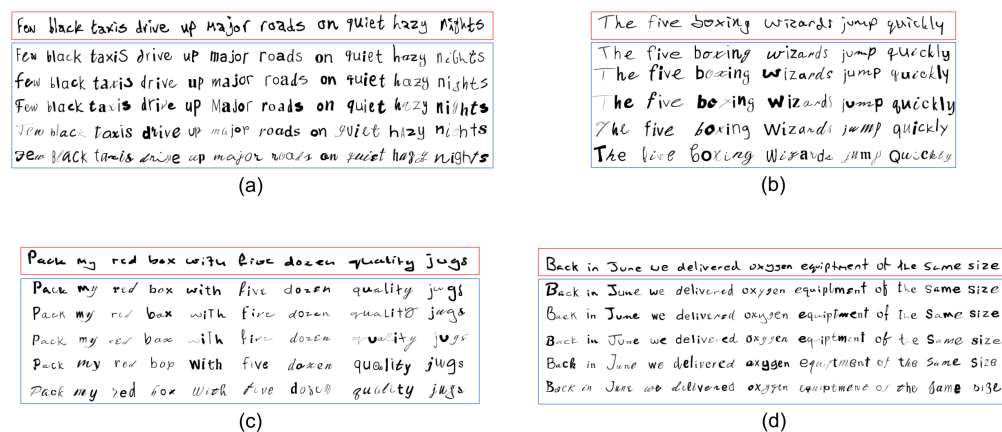 Few black taxis drive up Major roads on quiet hazy nights
Few black taxiS drive up major roads on quiet hazy nights
few black taxis drive up major roads on quiet hazy nights
Few black taxis drive up Major roads on quiet hazy nights
Few black taxis drive up major roads on quiet hazy nights
few black taxis drive up major roads on quiet hazy nights
(a)
The five boxing wizards jump quickly
The five boxing wizards jump quickly
The five boxing wizards jump quickly
The five boxing Wizards jump quickly
The five boxing Wizards jump quickly
The five boxing Wizards jump Quickly
(b)
Pack my red box with five dozen quality jugs
Pack my red box with five dozen quality jugs
Pack my red box with five dozen quality jugs
Pack my red box with five dozen quality jugs
Pack my red bop With five dozen quality jugs
Pack my red box With five dozen quality jugs
(c)
Back in June we delivered oxygen equiptment of the Same size
Back in June we delivered oxygen equiptment of the Same size
Back in June we delivered oxygen equiptment of the Same size
Back in June we delivered oxygen equiptment of the Same size
Back in June we delivered oxygen equiptment of the Same Size
Back in June we delivered oxygen equiptment of the Same size
(d)